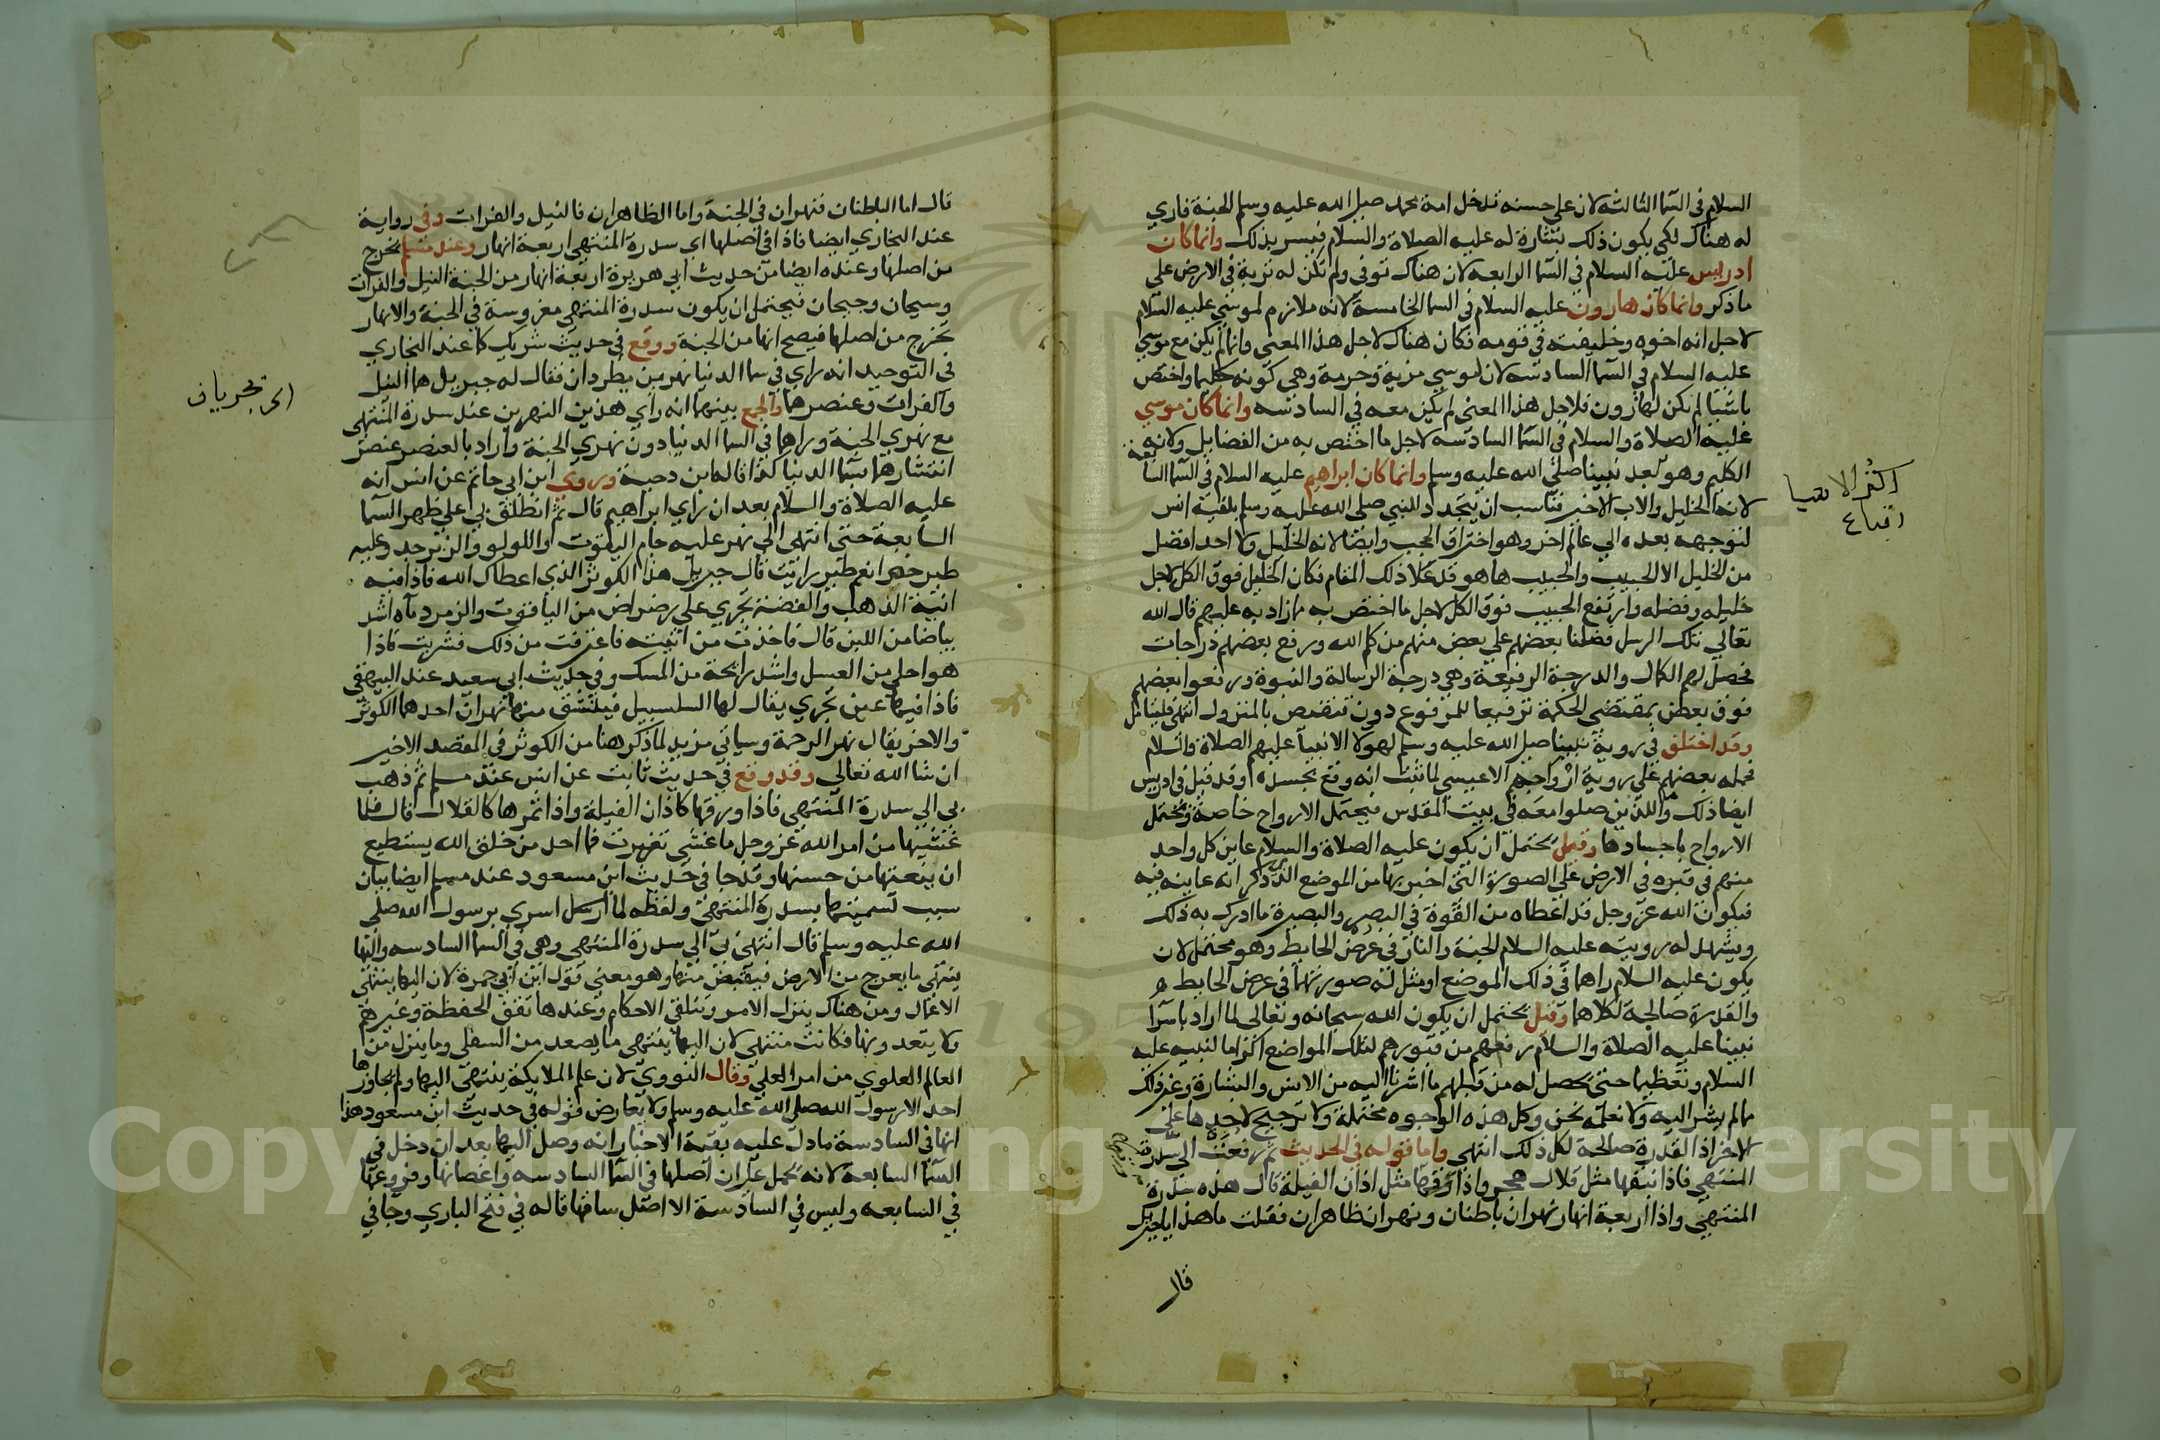 السلام في السما الثالثة لان علي حسنه تدخل امة محمد صلي الله عليه وسلم الجنة فاري
له هناك لكي يكون ذلك بشارة له عليه الصلاة والسلام فيسر بذلك وانما كان
ادريس عليه السلام في السما الرابعه لان هناك توفي ولم تكن له تربة في الارض علي
ما ذكر وانما كان هارون عليه السلام في السما الخامسة لانه ملازم لموسي عليه السلام
لاجل انه اخوه وخليفته في قومه فكان هناك لاجل هذا المعني وانما لم يكن مع موسي
عليه السلام في السما السادسه لان لموسي مزية وحرمة وهي كونه كليما واختص
باشيا لم تكن لهارون فلاجل هذا المعني لم يكن معه في السادسه وانما كان موسي
عليه الصلاة والسلام في السما السادسه لاجل ما اختص به من الفضايل ولانه
الكليم وهو بعد نبينا صلي الله عليه وسلم وانما كان ابراهيم عليه السلام في السما السابعة
لانه الخليل والاب الاخير فناسب ان يتجدد للنبي صلي الله عليه وسلم بلقيه انس
لتوجهه بعده الي عالم اخر وهو اختراق الحجب وايضا لانه الخليل ولا احد افضل
من الخليل الا الحبيب والحبيب ها هو قد علا ذلك المقام فكان الخليل فوق الكل لاجل
خليله وفضله وارتفع الحبيب فوق الكل لاجل ما اختص به مما زاد به عليهم قال الله
تعالي تلك الرسل فضلنا بعضهم علي بعض منهم من كلم الله ورفع بعضهم درجات
فحصل لهم الكمال والدرجة الرفيعة وهي درجة الرسالة والنبوة ورفعوا بعضهم
فوق بعض بمقتضي الحكمة ترفيعا للمرفوع دون تنقيص بالمنزول انتهي فليتامل
وقد اختلف في روية نبينا صلي الله عليه وسلم لهولا الانبيا عليهم الصلاة والسلام
فحمله بعضهم علي روية ارواحهم الا عيسي لما ثبت انه رفع بجسده وقد قيل في ادريس
ايضا ذلك واما الذين صلوا معه في بيت المقدس فيحتمل الارواح خاصة ويحتمل
الارواح باجسادها وقيل يحتمل ان يكون عليه الصلاة والسلام عاين كل واحد
منهم في قبره في الارض علي الصورة التي اخبر بها من الموضع الذي ذكر انه عاينه فيه
فيكون الله عز وجل قد اعطاه من القوة في البصر والبصيرة ما ادرك به ذلك
ويشهد له رويته عليه السلام الجنة والنار في عرض الحايط وهو محتمل لان
يكون عليه السلام راهما في ذلك الموضع او مثل له صورتهما في عرض الحايط
والقدرة صالحة لكلاهما وقيل يحتمل ان يكون الله سبحانه وتعالى لما اراد باسرا
نبينا عليه الصلاة والسلام رفعهم من قبورهم لتلك المواضع اكراما لنبيه عليه
السلام وتعظيما حتي يحصل له من قبلهم ما اشرنا اليه من الانس والبشارة وغير ذلك
مما لم يشر اليه ولا نعلمه نحن وكل هذه الوجوه محتملة ولا ترجيح لاحدها علي
الاخر اذ القدرة صالحة لكل ذلك انتهي واما قوله في الحديث ثم رفعت الي سدرة
المنتهي فاذا نبقها مثل قلال هجر واذا ورقها مثل اذان الفيلة قال هذه سدرة
المنتهي واذا اربعة انهار نهران باطنان ونهران ظاهران فقلت ما هذا يا جبريل
قال
اكثر الانبيا
اتباع
قال اما الباطنان فنهران في الجنة واما الظاهران فالنيل والفرات وفي رواية
عند البخاري ايضا فاذا في اصلها اي سدرة المنتهي اربعة انهار وعند مسلم يخرج
من اصلها وعنده ايضا من حديث ابي هريرة اربعة انهار من الجنة النيل والفرات
وسيحان وجيحان فيحتمل ان يكون سدرة المنتهي مغروسة في الجنة والانهار
تخرج من اصلها فيصح انها من الجنة ووقع في حديث شريك كما عند البخاري
في التوحيد انه راي في سما الدنيا نهرين يطردان فقال له جبريل هما النيل
والفرات وعنصرهما والجمع بينهما انه راي هذين النهرين عند سدرة المنتهي
مع نهري الجنة وراهما في السما الدنيا دون نهري الجنة واراد بالعنصر عنصر
انتشارهما بسما الدنيا كذا قاله ابن دحية وروي ابن ابي حاتم عن انس انه
عليه الصلاة والسلام بعد ان راي ابراهيم قال ثم انطلق بي علي ظهر السما
السابعة حتي انتهي الي نهر عليه خام الياقوت واللولو والزبرجد وعليه
طير خضر انعم طير رايت قال جبريل هذا الكوثر الذي اعطاك الله فاذا فيه
انية الذهب والفضة تجري علي رضراض من الياقوت والزمرد ماه اشد
بياضا من اللبن قال فاخذت من انيته فاغترفت من ذلك فشربت فاذا
هو احلي من العسل واشد رايحة من المسك وفي حديث ابي سعيد عند البيهقي
فاذا فيها عين تجري يقال لها السلسبيل فينشق منها نهران احدهما الكوثر
والاخر يقال نهر الرحمة وسياتي مزيد لما ذكر هنا من الكوثر في المقصد الاخير
ان شا الله تعالي وقد وقع في حديث ثابت عن انس عند مسلم ثم ذهب
بي الي سدرة المنتهي فاذا ورقها كاذان الفيلة واذا ثمرها كالقلال قال فلما
غشيها من امر الله عز وجل ما غشي تغيرت فما احد من خلق الله يستطيع
ان ينعتها من حسنها وقد جا في حديث ابن مسعود عند مسلم ايضا بيان
سبب تسميتها بسدرة المنتهي ولفظه لما اسري برسول الله صلي
الله عليه وسلم قال انتهي بي الي سدرة المنتهي وهي في السما السادسه واليها
ينتهي ما يعرج من الارض فيقبض منها وهو معني قول ابن ابي جمرة لان اليها ينتهي
الاعمال ومن هناك ينزل الامر وتتلقي الاحكام وعندها تقف الحفظة وغيرهم
ولا يتعدونها فكانت منتهي لان اليها ينتهي ما يصعد من السفلي وما ينزل من
العالم العلوي من امر العلي وقال النووي لان علم الملايكة ينتهي اليها ولم يجاوزها
احد الا رسول الله صلي الله عليه وسلم ولا يعارض قوله في حديث ابن مسعود هذا
انها في السادسة ما دل عليه بقية الاخبار انه وصل اليها بعد ان دخل في
السما السابعة لانه يحمل علي ان اصلها في السما السادسه واغصانها وفروعها
في السابعه وليس في السادسة الا اصل ساقها قاله في فتح الباري وجا في